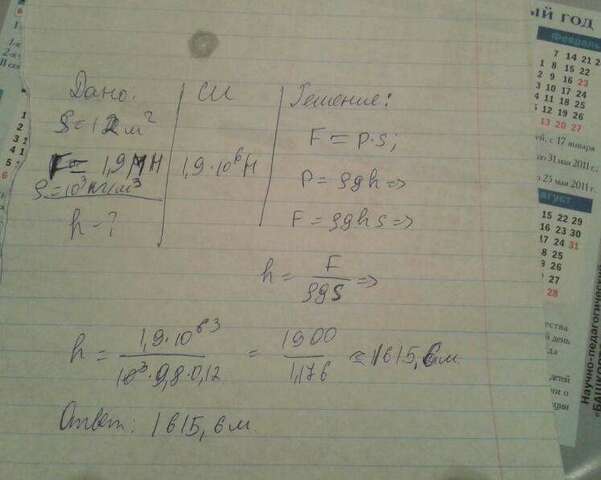 Дано:
S = 12 м²
F = 1,9 МН
ρ = 10³ кг/м³
h - ?
СИ
1,9·10⁶ Н
Решение:
F = p·s;
P = ρgh =>
F = ρghs =>
h = F/ρgs =>
h = 1,9·10⁶ ³/10³·9,8·0,12 = 1900/1,176 ≈ 1615,6 м
Ответ: 1615,6 м.
ЫЙ ГОД
февраль
7 14 21
1 8 15 22
2 9 16 23
3 10 17 24
4 11 18 25
5 12 19 26
13 20 27
с 17 января
31 мая 2011 г.,
25 мая 2011 г.;
август
15 22 29
16 23 30
10 17 24 31
11 18 25
28
Научно-педагогический